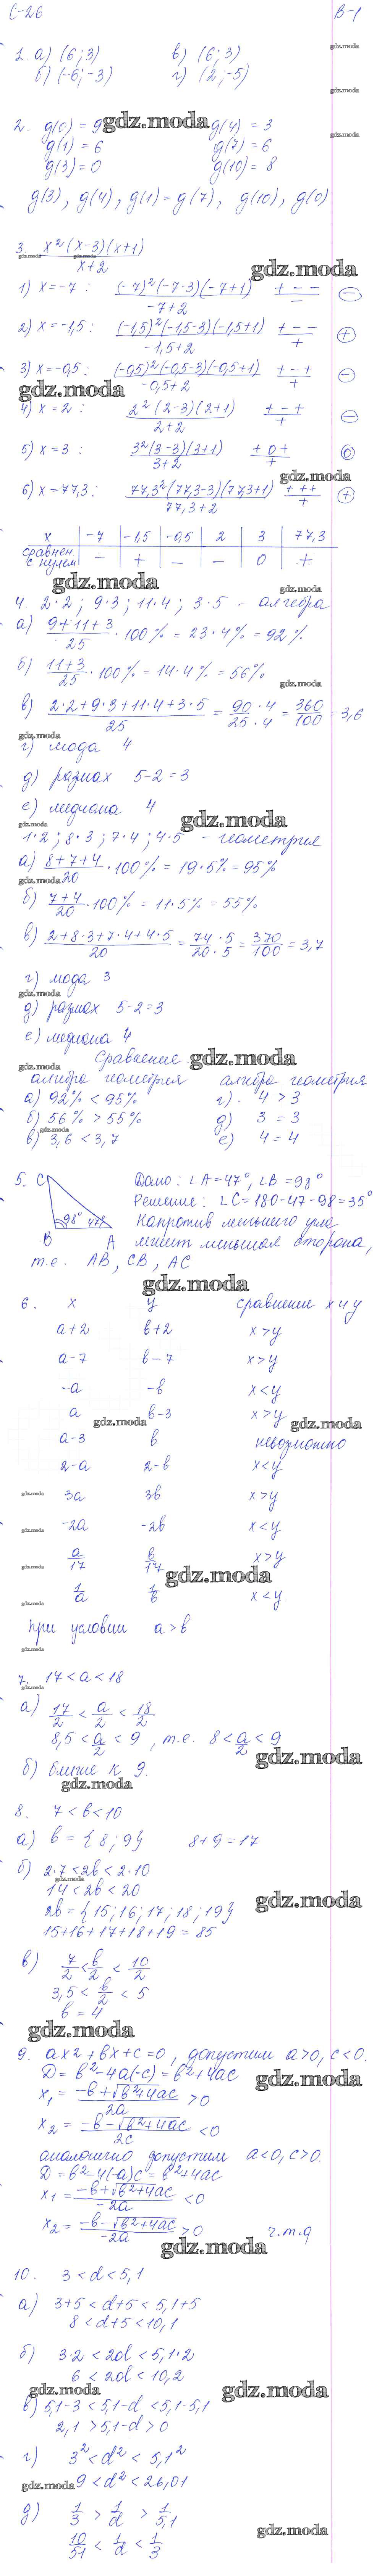 С-26 В-1
1. а) (6; 3) в) (6; 3)
б) (-6; -3) г) (2; -5)
2. g(0) = 9 g(4) = 3
g(1) = 6 g(7) = 6
g(3) = 0 g(10) = 8
g(3), g(4), g(1) = g(7), g(10), g(0)
3. x²(x-3)(x+1) / x+2
1) x = -7 : (-7)²(-7-3)(-7+1) / -7+2 + - - / - (-)
2) x = -1,5 : (-1,5)²(-1,5-3)(-1,5+1) / -1,5+2 + - - / + (+)
3) x = -0,5 : (-0,5)²(-0,5-3)(-0,5+1) / -0,5+2 + - + / + (-)
4) x = 2 : 2²(2-3)(2+1) / 2+2 + - + / + (-)
5) x = 3 : 3²(3-3)(3+1) / 3+2 + 0 + / + (0)
6) x = 77,3 : 77,3²(77,3-3)(77,3+1) / 77,3+2 + + + / + (+)
x -7 -1,5 -0,5 2 3 77,3
сравнен. с нулем - + - - 0 +
4. 2·2 ; 9·3 ; 11·4 ; 3·5 - алгебра
а) 9+11+3 / 25 · 100% = 23·4% = 92%
б) 11+3 / 25 · 100% = 14·4% = 56%
в) 2·2+9·3+11·4+3·5 / 25 = 90·4 / 25·4 = 360 / 100 = 3,6
г) мода 4
д) размах 5-2=3
е) медиана 4
1·2 ; 8·3 ; 7·4 ; 4·5 - геометрия
а) 8+7+4 / 20 · 100% = 19·5% = 95%
б) 7+4 / 20 · 100% = 11·5% = 55%
в) 2+8·3+7·4+4·5 / 20 = 74·5 / 20·5 = 370 / 100 = 3,7
г) мода 3
д) размах 5-2=3
е) медиана 4
Сравнение
алгебра геометрия алгебра геометрия
а) 92% < 95% г) 4 > 3
б) 56% > 55% д) 3 = 3
в) 3,6 < 3,7 е) 4 = 4
5. C Дано: ∠A = 47°, ∠B = 98°
Решение: ∠C = 180-47-98 = 35°
98° 47° Напротив меньшего угла
B A лежит меньшая сторона,
т.е. AB, CB, AC
6. x y сравнение x и y
a+2 b+2 x>y
a-7 b-7 x>y
-a -b x<y
a b-3 x>y
a-3 b невозможно
2-a 2-b x<y
3a 3b x>y
-2a -2b x<y
a/17 b/17 x>y
1/a 1/b x<y.
при условии a>b
7. 17 < a < 18
а) 17/2 < a/2 < 18/2
8,5 < a/2 < 9, т.е. 8 < a/2 < 9
б) ближе к 9.
8. 7 < b < 10
а) b = {8; 9} 8+9=17
б) 2·7 < 2b < 2·10
14 < 2b < 20
2b = {15; 16; 17; 18; 19}
15+16+17+18+19 = 85
в) 7/2 < b/2 < 10/2
3,5 < b/2 < 5
b = 4
9. ax2 + bx + c = 0, допустим a>0, c<0.
D = b² - 4a(-c) = b² + 4ac
x₁ = -b+√b²+4ac / 2a > 0
x₂ = -b-√b²+4ac / 2c < 0
аналогично допустим a<0, c>0.
D = b² - 4(-a)c = b² + 4ac
x₁ = -b+√b²+4ac / -2a < 0
x₂ = -b-√b²+4ac / -2a > 0 ч.т.д
10. 3 < d < 5,1
а) 3+5 < d+5 < 5,1+5
8 < d+5 < 10,1
б) 3·2 < 2d < 5,1·2
6 < 2d < 10,2
в) 5,1-3 < 5,1-d < 5,1-5,1
2,1 > 5,1-d > 0
г) 3² < d² < 5,1²
9 < d² < 26,01
д) 1/3 > 1/d > 1/5,1
10/51 < 1/d < 1/3
gdz.moda